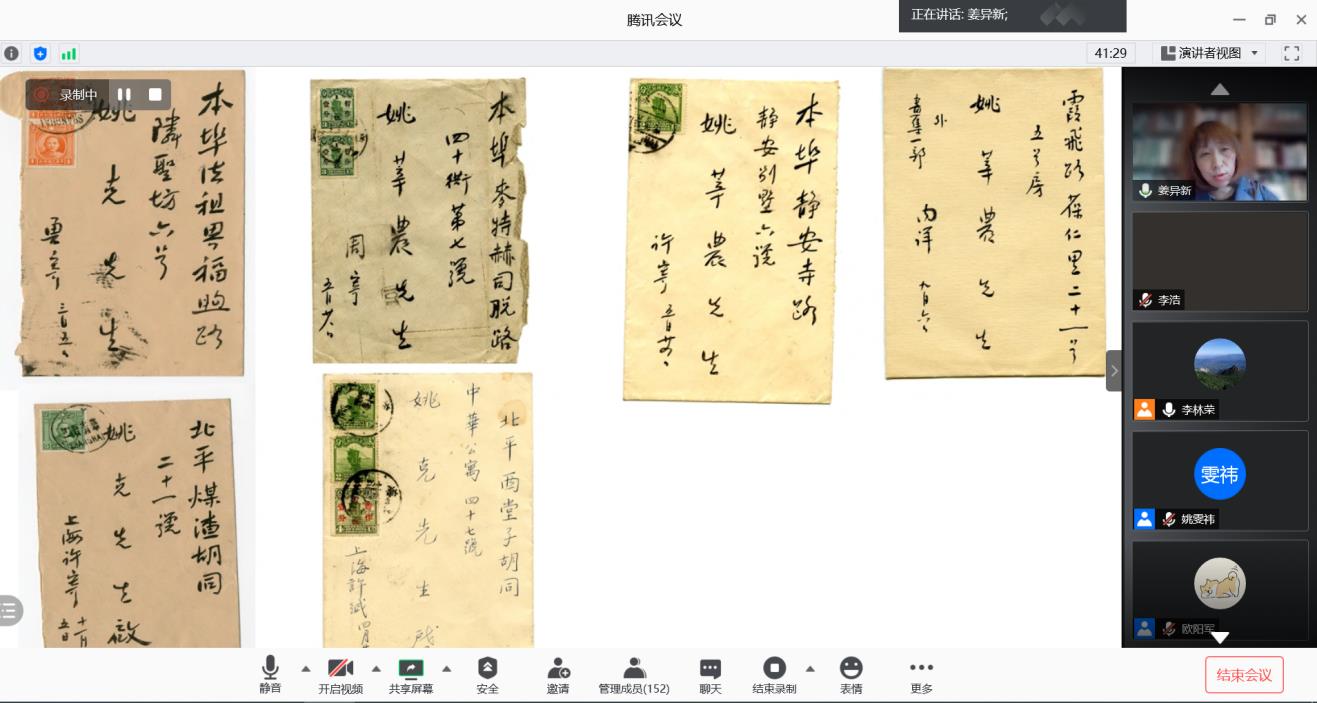 腾讯会议
正在讲话: 姜异新;
41:29
演讲者视图
录制中
本埠法租界福煦路
隣聖坊六号
姚克先生
本埠麥特赫司脱路
四十衖第七號
姚莘農先生
周寄
本埠静安寺路
静安别墅六號
姚莘農先生
許寄
霞飛路葆仁里二十一号
五号房
姚莘農先生
外
書集一部
内詳
九月六
北平煤渣胡同
二十一號
姚克先生啟
上海許寄
十一月
五日
北平西堂子胡同
中華公寓四十七號
姚克先生
上海許緘四月
姜异新
李浩
李林荣
雯祎
姚雯祎
欧阳军
静音
开启视频
共享屏幕
安全
邀请
管理成员(152)
聊天
结束录制
表情
更多
结束会议